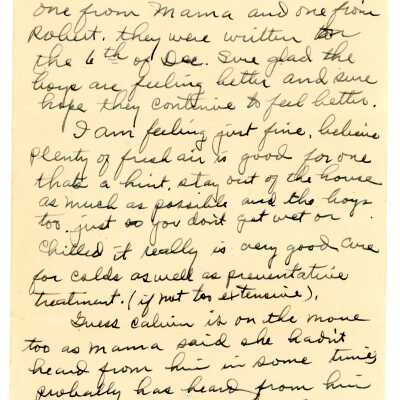 one from Mama and one from
Robert. they were written on
the 6th of Dec. Sure glad the
boys are feeling better and sure
hope they continue to feel better.
I am feeling just fine, believe
plenty of fresh air is good for one
thats a hint, stay out of the house
as much as possible and the boys
too. just so you don't get wet or
chilled it really is very good cure
for colds as well as preventative
treatment. (if not too extensive).
Guess Calvin is on the move
too as Mama said she hadn't
heard from him in some time,
probably has heard from him